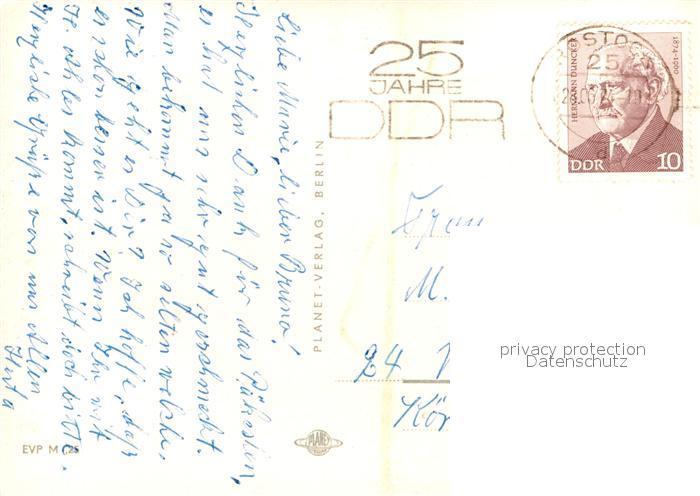 Liebe Marie, lieber Bruno!
Herzlichen Dank für das Päkchen,
es hat uns sehr gut geschmeckt.
Man bekommt ja so selten welche.
Wie geht es Dir? Ich hoffe, daß
es schon besser ist. Wenn Ihr mit
kommt, schreibt doch bitte.
Herzliche Grüße von uns Allen
PLANET-VERLAG, BERLIN
EVP M -,25
PLANET
25
JAHRE
DDR
HERMANN DUNCKER
1874-1960
DDR
10
STO
25
Frau
M.
24
Kör
privacy protection
Datenschutz